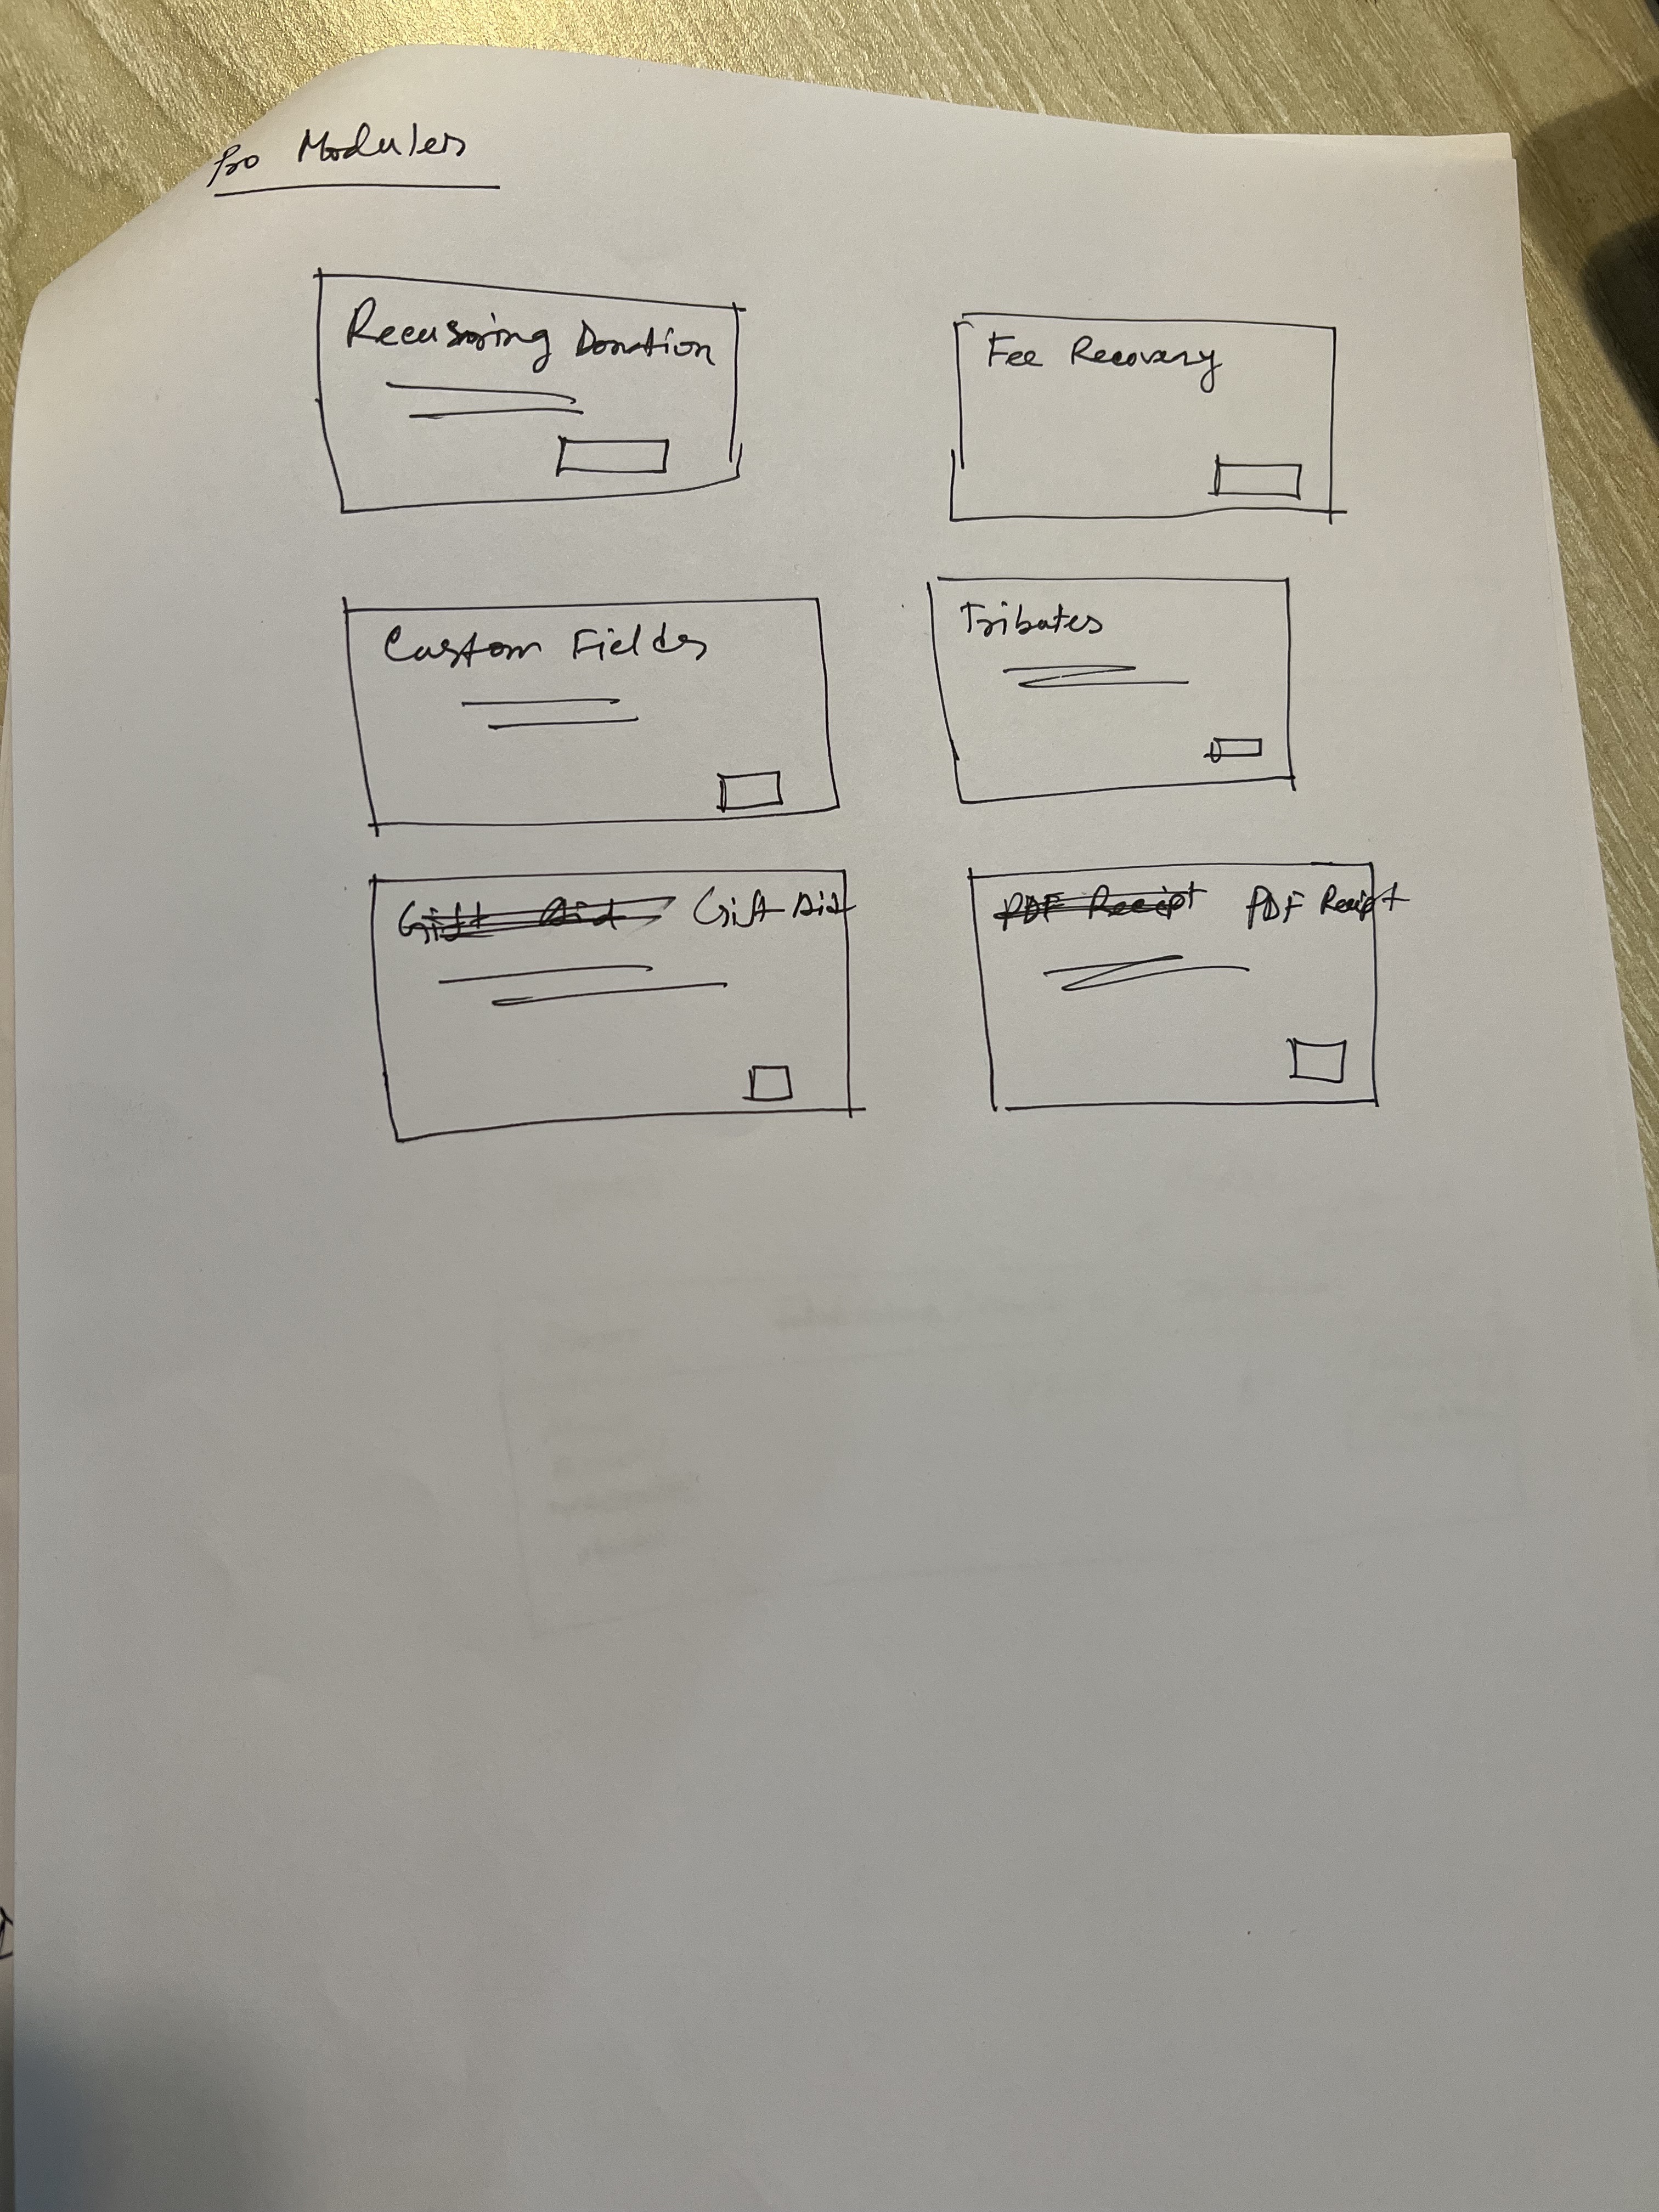 Pro Modules
Recurring Donation
Fee Recovery
Custom Fields
Tributes
Gift Aid Gift Aid
PDF Receipt PDF Receipt